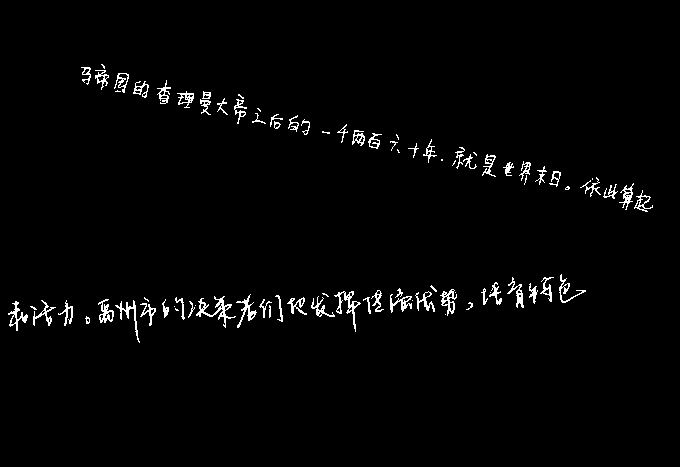 马帝国的查理曼大帝之后的一千两百六十年.就是世界末日。依此算起
和活力。禹州市的决策者们把发挥资源优势，培育特色